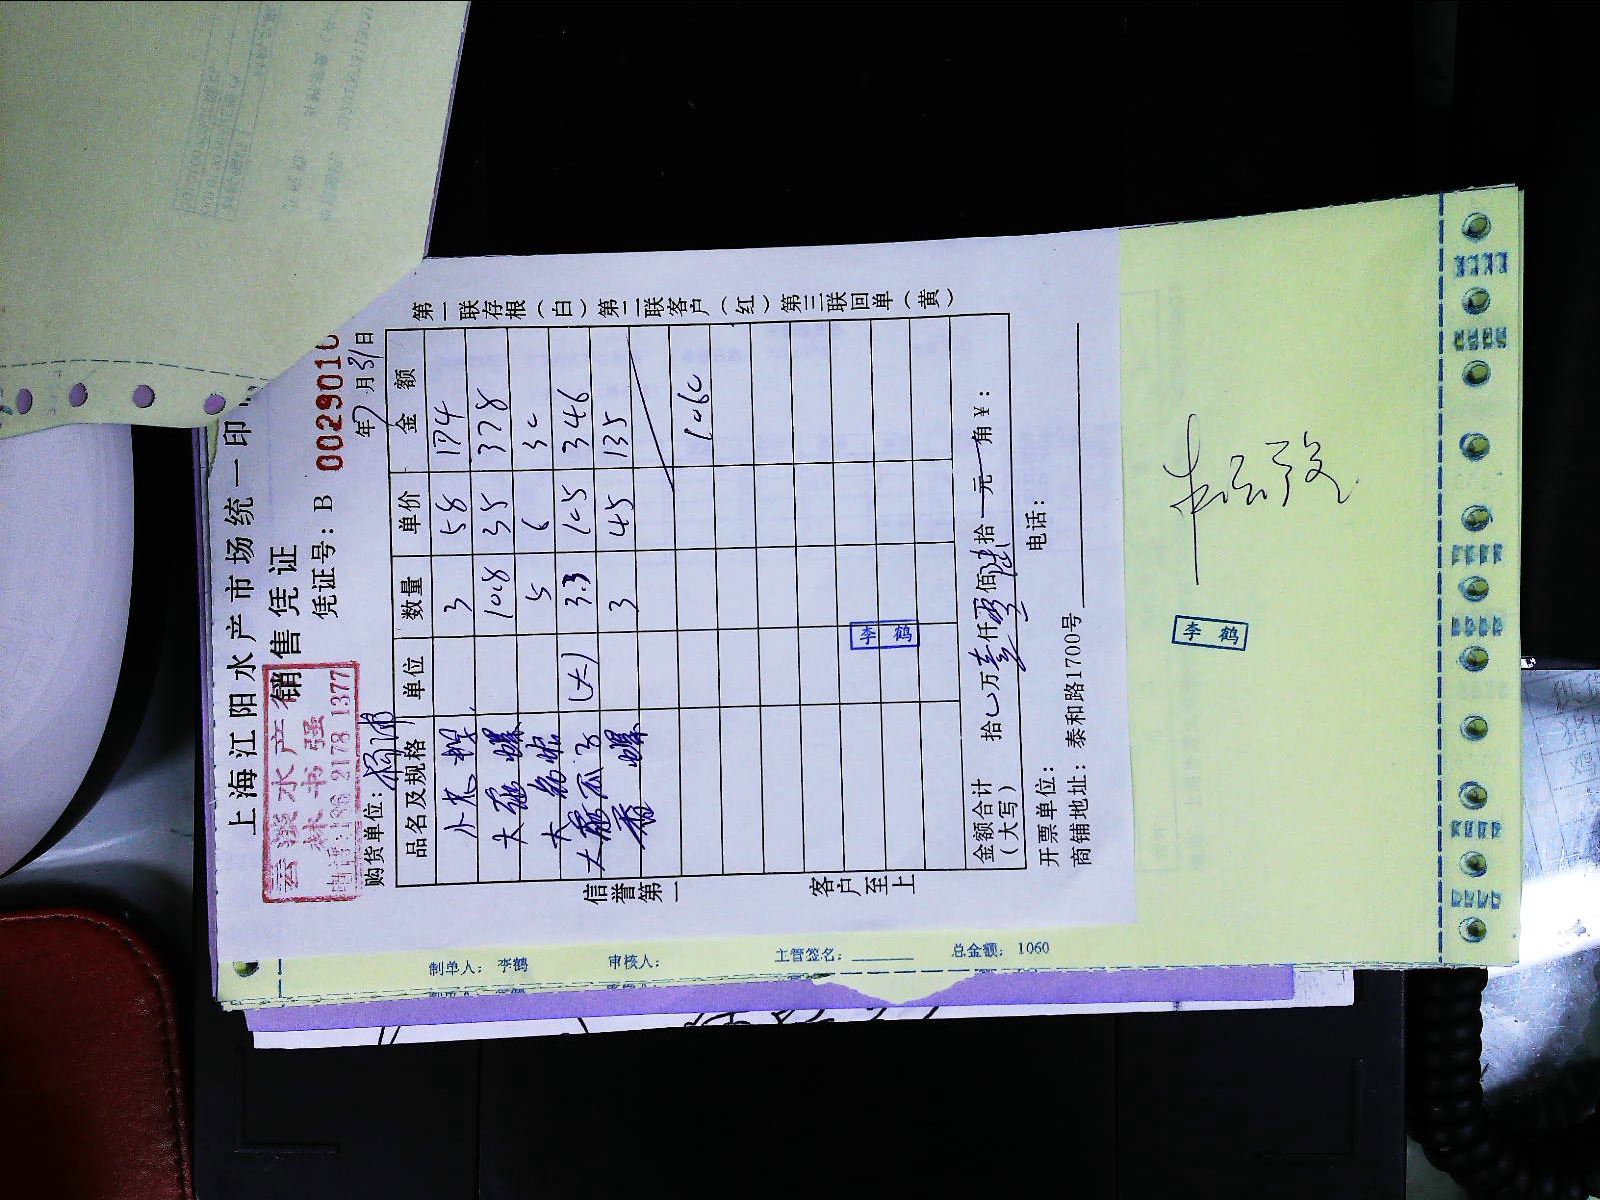 上海江阳水产市场统一印
销售凭证
云淡水产
林书强
电话:136 2178 1377
凭证号:B 0029010
购货单位: 杨浦
年7月31日
品名及规格 单位 数量 单价 金额
3 58 174
大 螺 10.8 35 378
大 蛤 5 6 30
大 瓜子 (大) 3.3 105 346
香螺 3 45 135
1060
李鹤
金额合计(大写) 拾 万壹仟零佰陆拾元角¥:
开票单位: 电话:
商铺地址:泰和路1700号
信誉第一
客户至上
第一联存根(白)第二联客户(红)第三联回单(黄)
制单人: 李鹤 审核人: 主管签名: 总金额: 1060
李鹤